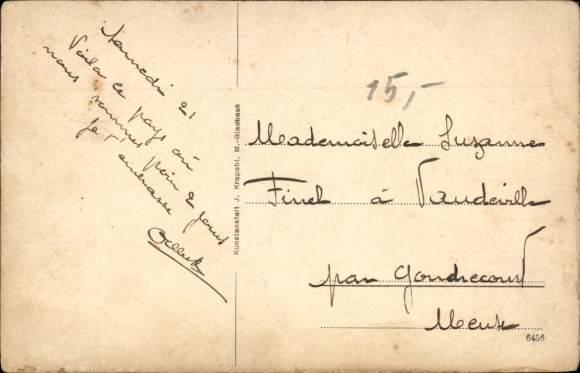 Samedi 21
Voila le pays où
nous sommes pour 2 jours
Je t'embrasse
Kunstanstalt J. Krapohl, M.-Gladbach
15,-
Mademoiselle Suzanne
Finel à Vaudeville
par Gondrecourt
Meuse
6456